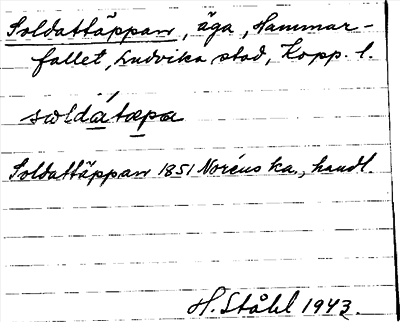 Soldattäppan, äga, Hammar-
fallet, Ludvika stad, Kopp. l.
soldátæpa
Soldattäppan 1851 Noréns ka., handl.
H. Ståhl 1943.